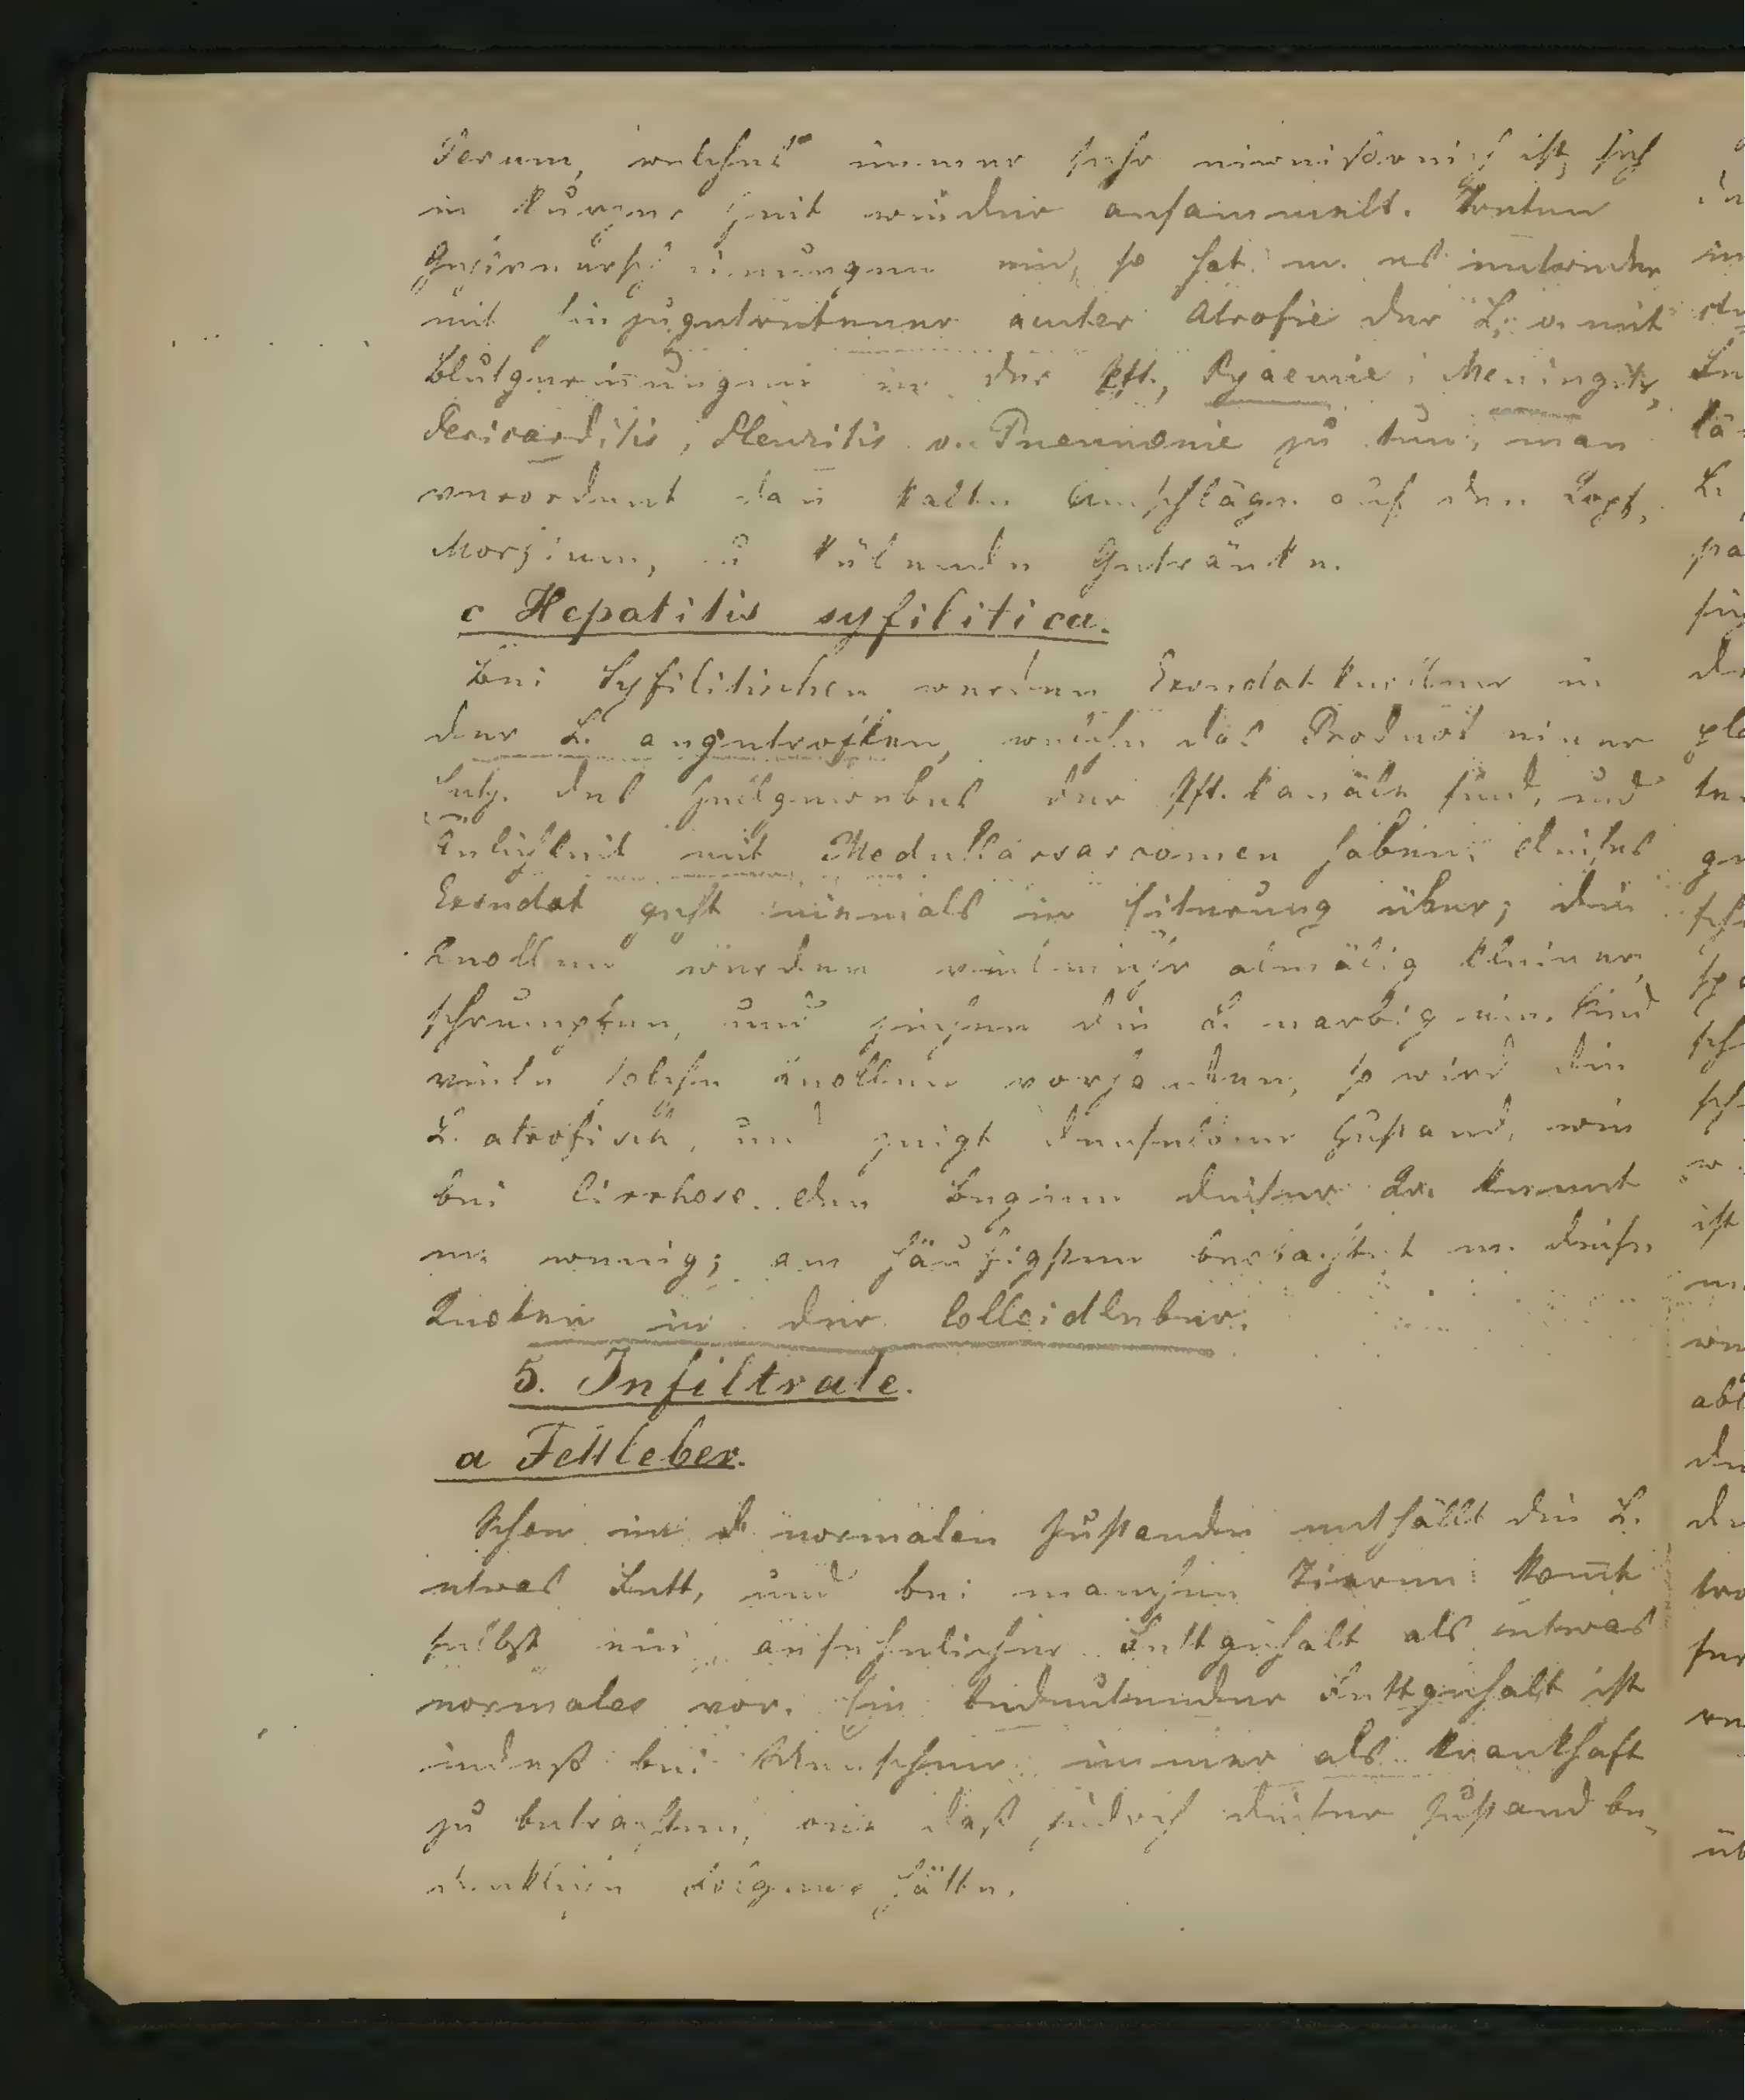 Serum, welches immer sehr eiweisreich ist, sich
in kurzer Zeit wieder ansammelt. Treten
Gehirnerscheinungen ein, so hat m. es entweder
mit hinzugetretener acuter Atrofie der L. o. mit
Blutgerinnungen in der Pft., Pyaemie, Meningitis,
Pericarditis, Pleuritis o. Pneumonie zu tun; man
verordnet dan kalte Umschläge auf den Kopf,
Morfium, u külende Getränke.
c Hepatitis syfilitica.
Bei Syfilitischen werden Exsudatknoten in
der L. angetroffen, welche das Product einer
Entz. des Zellgewebes der Pft. kanäle sind, und
Änlichkeit mit Medullarsarcomen haben; dieses
Exsudat geht niemals in Eiterung über; die
Knollen werden vielmehr almälig kleiner,
schrumpfen, und ziehen die L. narbig ein. Sind
viele solche Knollen vorhanden, so wird die
L. atrofisch, und zeigt denselben Zustand, wie
bei Cirrhose. Den Beginn dieser Kr. kennt
m. wenig; am häufigsten beobachtet m. diese
Knoten in der Colloidleber.
5. Infiltrate.
a Fettleber.
Schon im normalen Zustande enthält die L.
etwas Fett, und bei manchen Tieren komt
selbst ein ansehnlicher Fettgehalt als etwas
normales vor. Ein bedeutender Fettgehalt ist
indeß bei Menschen immer als krankhaft
zu betrachten, one daß jedoch dieser Zustand be-
denkliche Folgen hätte.